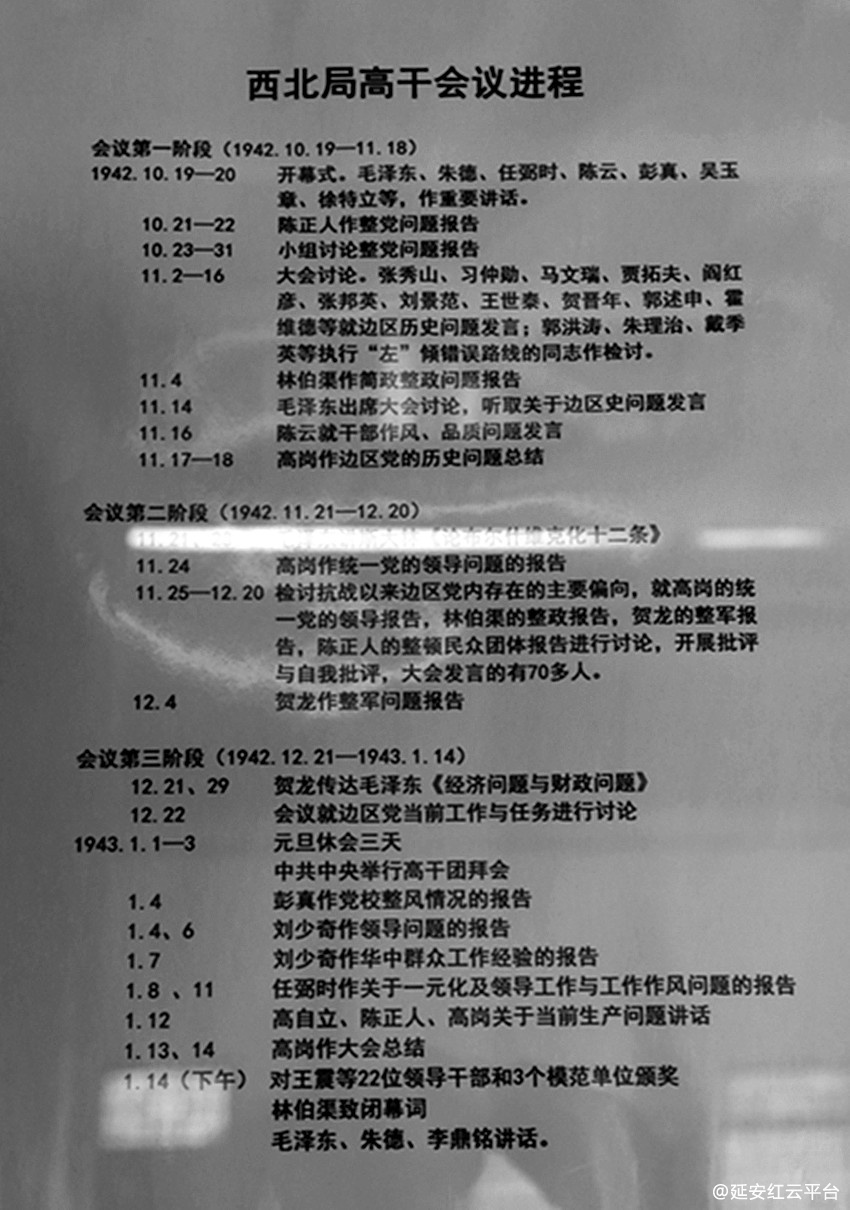 西北局高干会议进程
会议第一阶段（1942.10.19—11.18）
1942.10.19—20 开幕式。毛泽东、朱德、任弼时、陈云、彭真、吴玉
章、徐特立等，作重要讲话。
10.21—22 陈正人作整党问题报告
10.23—31 小组讨论整党问题报告
11.2—16 大会讨论。张秀山、习仲勋、马文瑞、贾拓夫、阎红
彦、张邦英、刘景范、王世泰、贺晋年、郭述申、霍
维德等就边区历史问题发言；郭洪涛、朱理治、戴季
英等执行“左”倾错误路线的同志作检讨。
11.4 林伯渠作简政整政问题报告
11.14 毛泽东出席大会讨论，听取关于边区史问题发言
11.16 陈云就干部作风、品质问题发言
11.17—18 高岗作边区党的历史问题总结
会议第二阶段（1942.11.21—12.20）
11.21、《论布尔什维克化十二条》
11.24 高岗作统一党的领导问题的报告
11.25—12.20 检讨抗战以来边区党内存在的主要偏向，就高岗的统
一党的领导报告，林伯渠的整政报告，贺龙的整军报
告，陈正人的整顿民众团体报告进行讨论，开展批评
与自我批评，大会发言的有70多人。
12.4 贺龙作整军问题报告
会议第三阶段（1942.12.21—1943.1.14）
12.21、29 贺龙传达毛泽东《经济问题与财政问题》
12.22 会议就边区党当前工作与任务进行讨论
1943.1.1—3 元旦休会三天
中共中央举行高干团拜会
1.4 彭真作党校整风情况的报告
1.4、6 刘少奇作领导问题的报告
1.7 刘少奇作华中群众工作经验的报告
1.8 、11 任弼时作关于一元化及领导工作与工作作风问题的报告
1.12 高自立、陈正人、高岗关于当前生产问题讲话
1.13、14 高岗作大会总结
1.14（下午） 对王震等22位领导干部和3个模范单位颁奖
林伯渠致闭幕词
毛泽东、朱德、李鼎铭讲话。
@延安红云平台